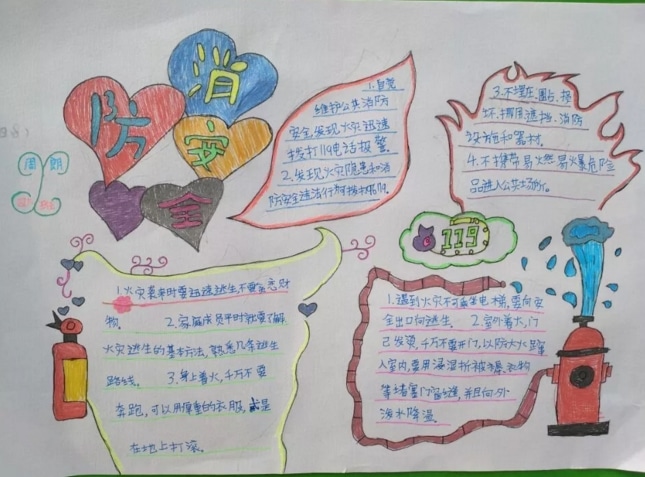 消
防
安
全
1.自觉
维护公共消防
安全,发现火灾迅速
拨打119电话报警
2.发现火灾隐患和消
防安全违法行为
3.不埋压、圈占、损
坏、挪用、遮挡、消防
设施和器材。
4.不携带易火燃易火暴危险
品进入公共场所。
119
1.火灾袭来时要迅速逃生,不要贪恋财
物。 2.家庭成员平时就要了解
火灾逃生的基本方法,熟悉几条逃生
路线。 3.身上着火,千万不要
奔跑,可以用厚重的衣服,或是
在地上打滚。
1.遇到火灾不可乘坐电梯,要向安
全出口向逃生。 2.室外着火,门
己发烫,千万不要开门,以防大火
入室内,要用浸湿 被褥、衣物
等堵塞门窗缝,并且向外
泼水降温。